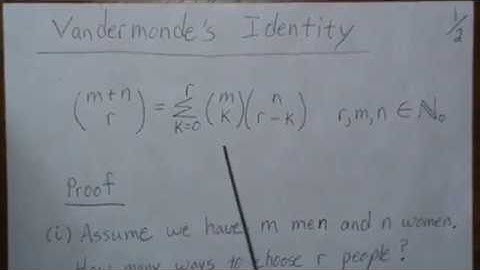 Vandermonde's Identity
1/2
(m+n r) = r Σ k=0 (m k)(n r-k) r,m,n ∈ ℕ₀
Proof
(i) Assume we have m men and n women.
How many ways to choose r people?